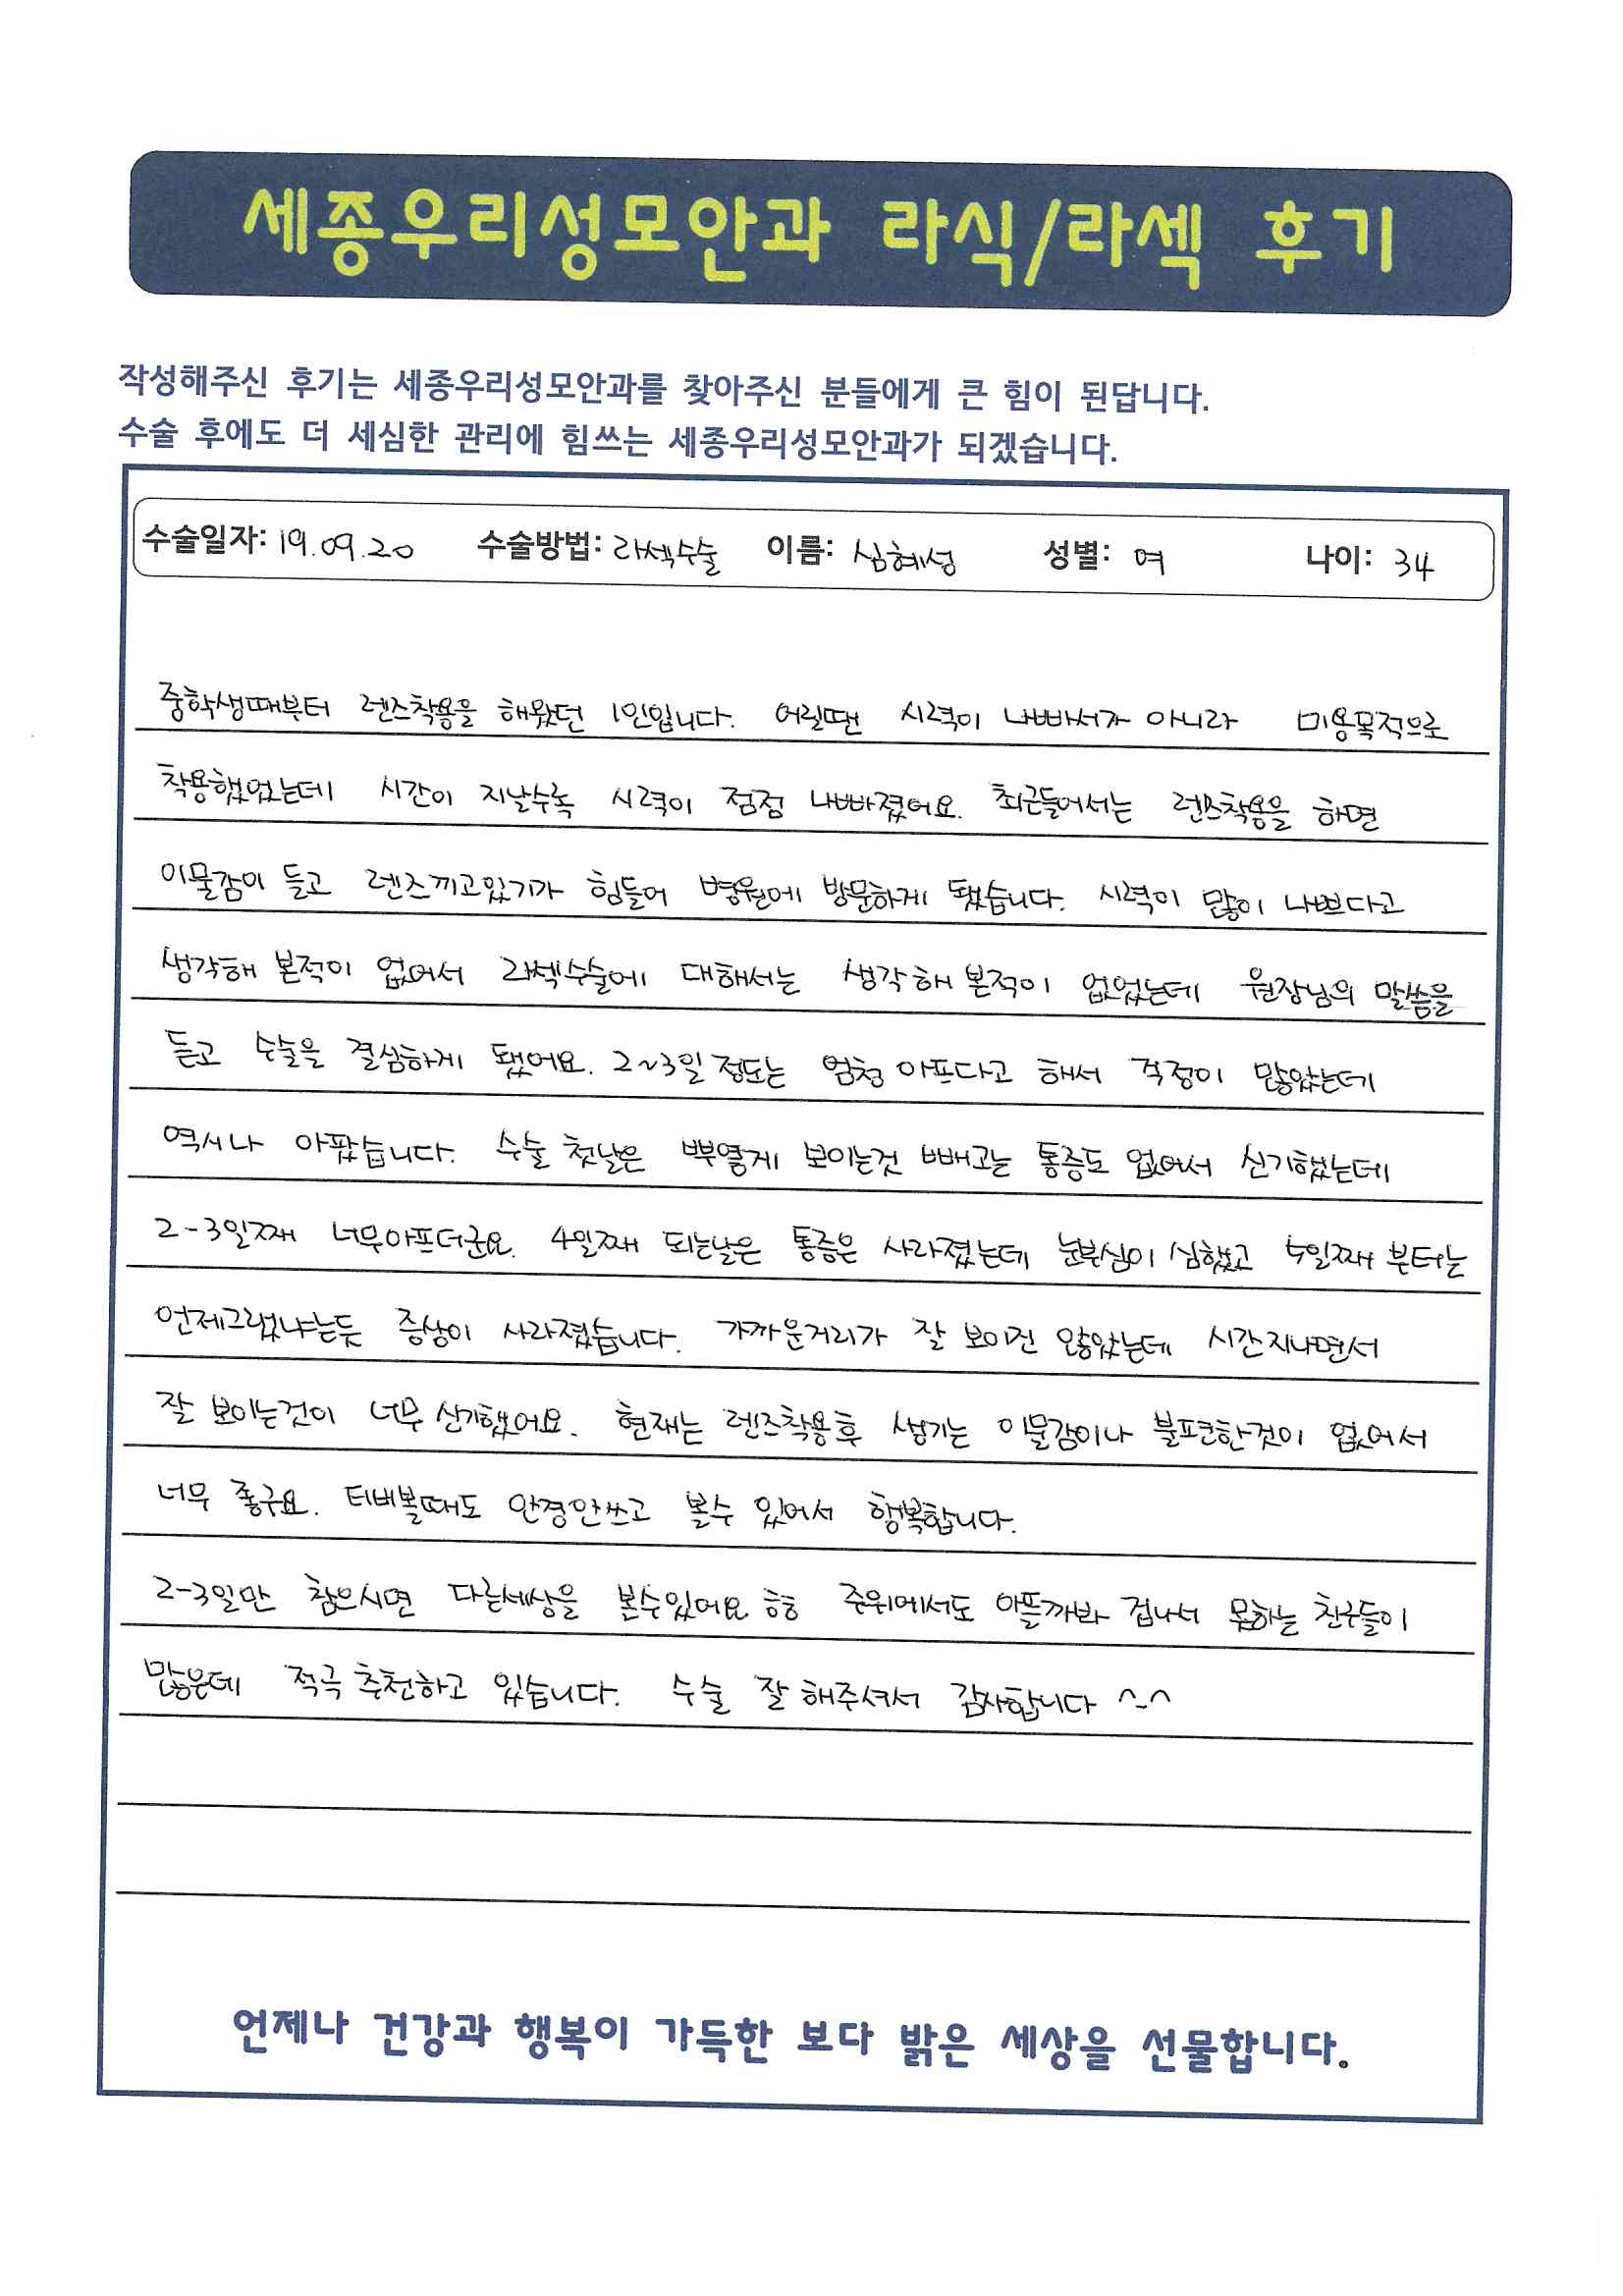 세종우리성모안과 라식/라섹 후기
작성해주신 후기는 세종우리성모안과를 찾아주신 분들에게 큰 힘이 된답니다.
수술 후에도 더 세심한 관리에 힘쓰는 세종우리성모안과가 되겠습니다.
수술일자: 19.09.20 수술방법: 라섹수술 이름: 심혜성 성별: 여 나이: 34
중학생때부터 렌즈착용을 해왔던 1인입니다. 어릴땐 시력이 나빠서가 아니라 미용목적으로
착용했었는데 시간이 지날수록 시력이 점점 나빠졌어요. 최근들어서는 렌즈착용을 하면
이물감이 들고 렌즈끼고있기가 힘들어 병원에 방문하게 됐습니다. 시력이 많이 나쁘다고
생각해 본적이 없어서 라섹수술에 대해서는 생각해 본적이 없었는데 원장님의 말씀을
듣고 수술을 결심하게 됐어요. 2~3일 정도는 엄청 아프다고 해서 걱정이 많았는데
역시나 아팠습니다. 수술 첫날은 뿌옇게 보이는것 빼고는 통증도 없어서 신기했는데
2-3일째 너무아프더군요. 4일째 되는날은 통증은 사라졌는데 눈부심이 심했고 5일째 부터는
언제그랬냐는듯 증상이 사라졌습니다. 가까운거리가 잘 보이진 않았는데 시간지나면서
잘 보이는것이 너무 신기했어요. 현재는 렌즈착용후 생기는 이물감이나 불편한것이 없어서
너무 좋구요. 티비볼때도 안경안쓰고 볼수 있어서 행복합니다.
2-3일만 참으시면 다른세상을 볼수있어요 ㅎㅎ 주위에서도 아플까봐 겁나서 못하는 친구들이
많은데 적극 추천하고 있습니다. 수술 잘 해주셔서 감사합니다 ^-^
언제나 건강과 행복이 가득한 보다 밝은 세상을 선물합니다.